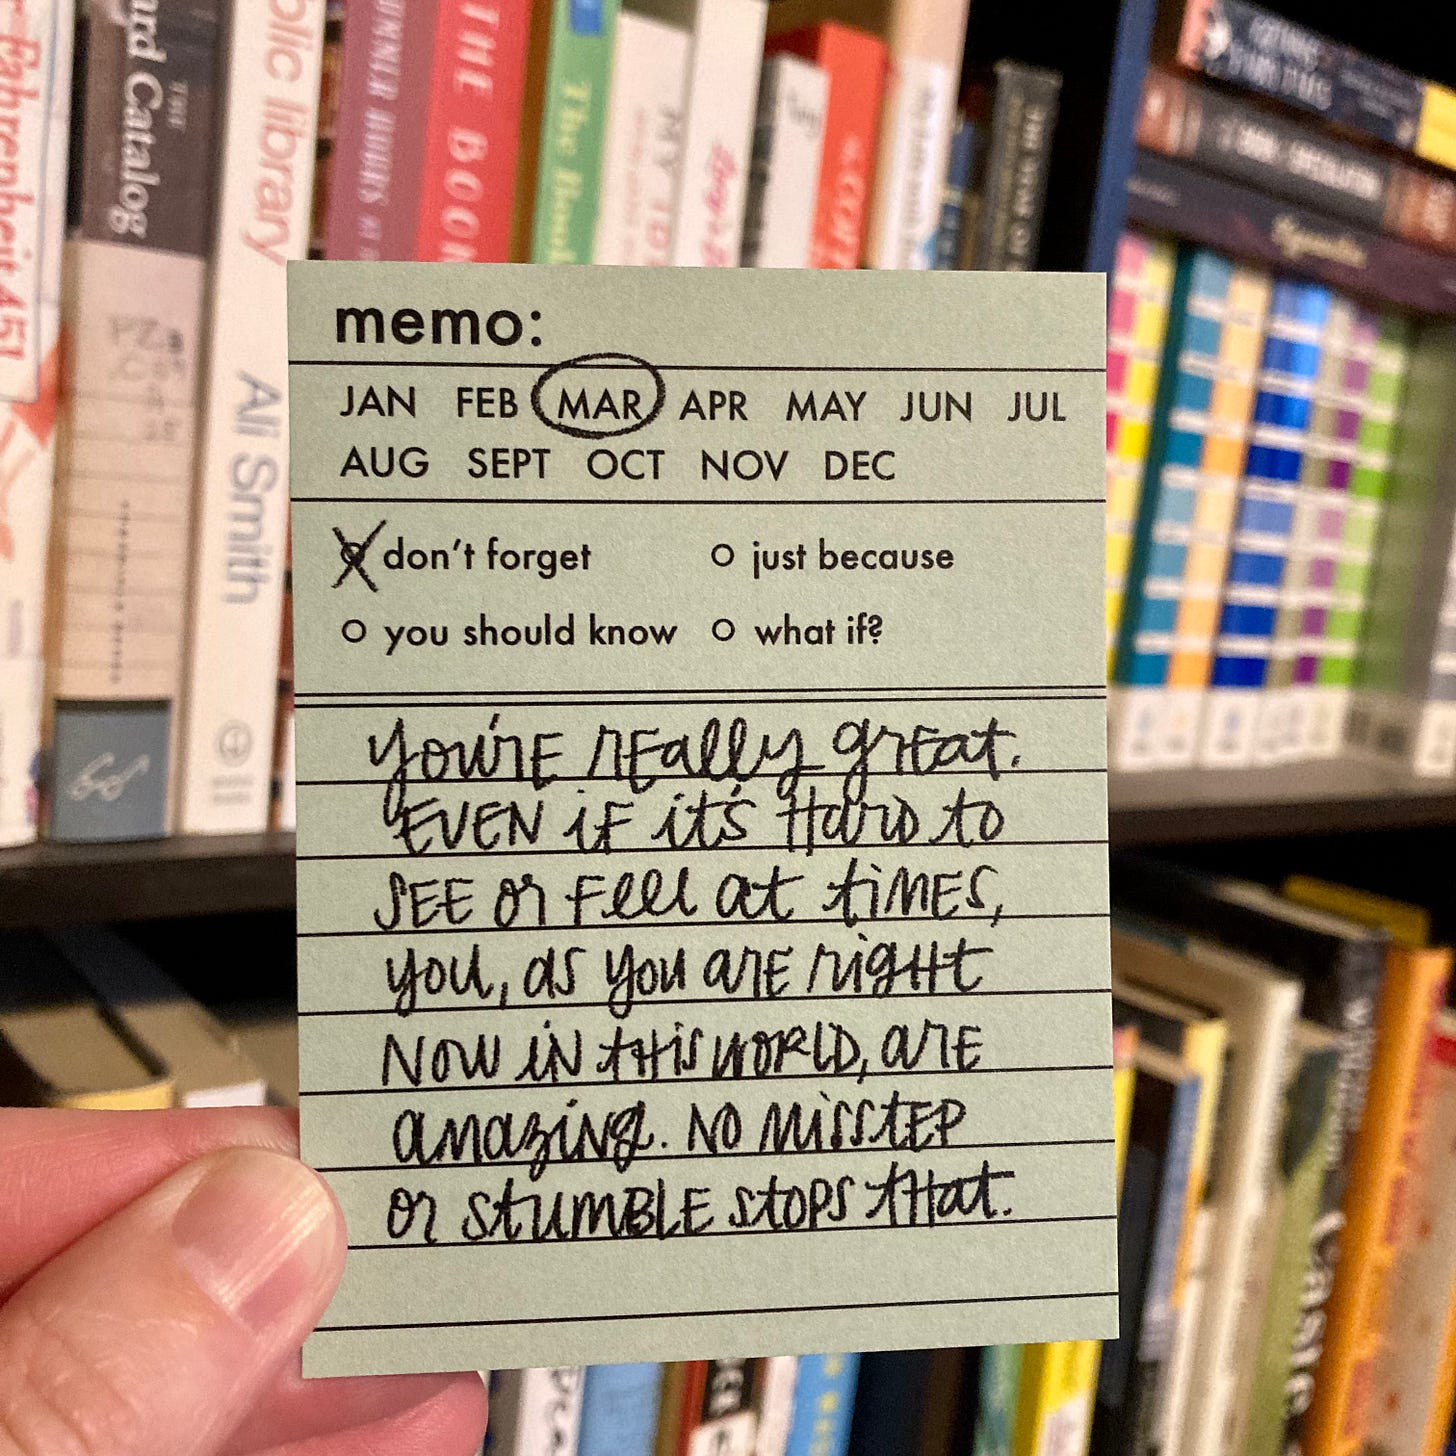 Fahrenheit 451
Card Catalog
THE
Public library
Ali Smith
DINNER HOURS
THE BOOK
The Book
MY
memo:
JAN FEB MAR APR MAY JUN JUL
AUG SEPT OCT NOV DEC
don't forget
just because
you should know
what if?
You're really great.
Even if it's hard to
see or feel at times,
you, as you are right
now in this world, are
amazing. No misstep
or stumble stops that.